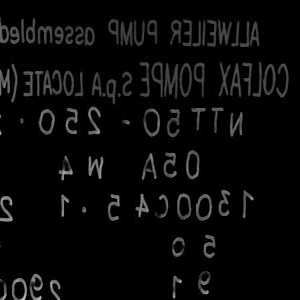 ALLWEILER PUMP assembled
COLFAX POMPE S.p.A LOCATE (M
NTT50 - 250 ·
05A W 4
1300C45 · 1 2
50
91 290